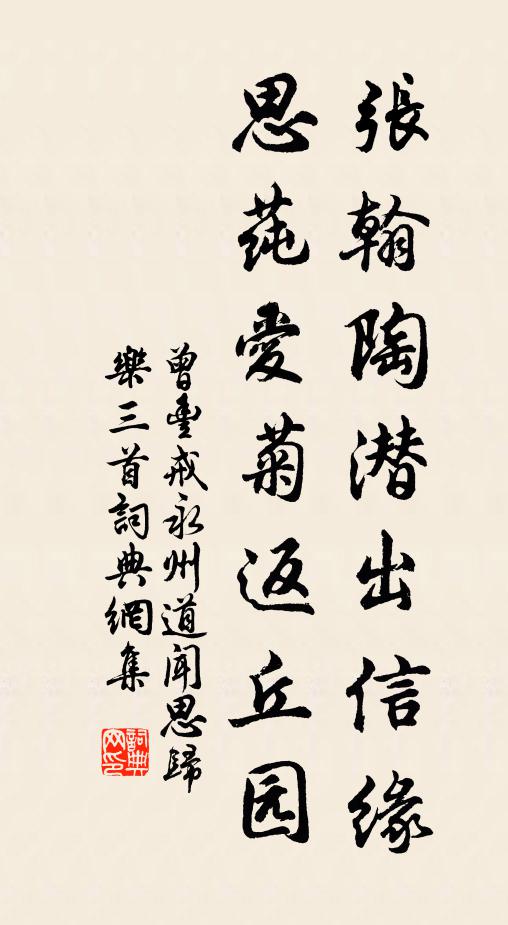 張翰陶潜出信緣
思莼愛菊返丘园
曾豊戒永州道闻思歸
樂三首詞典網集
詞典网印